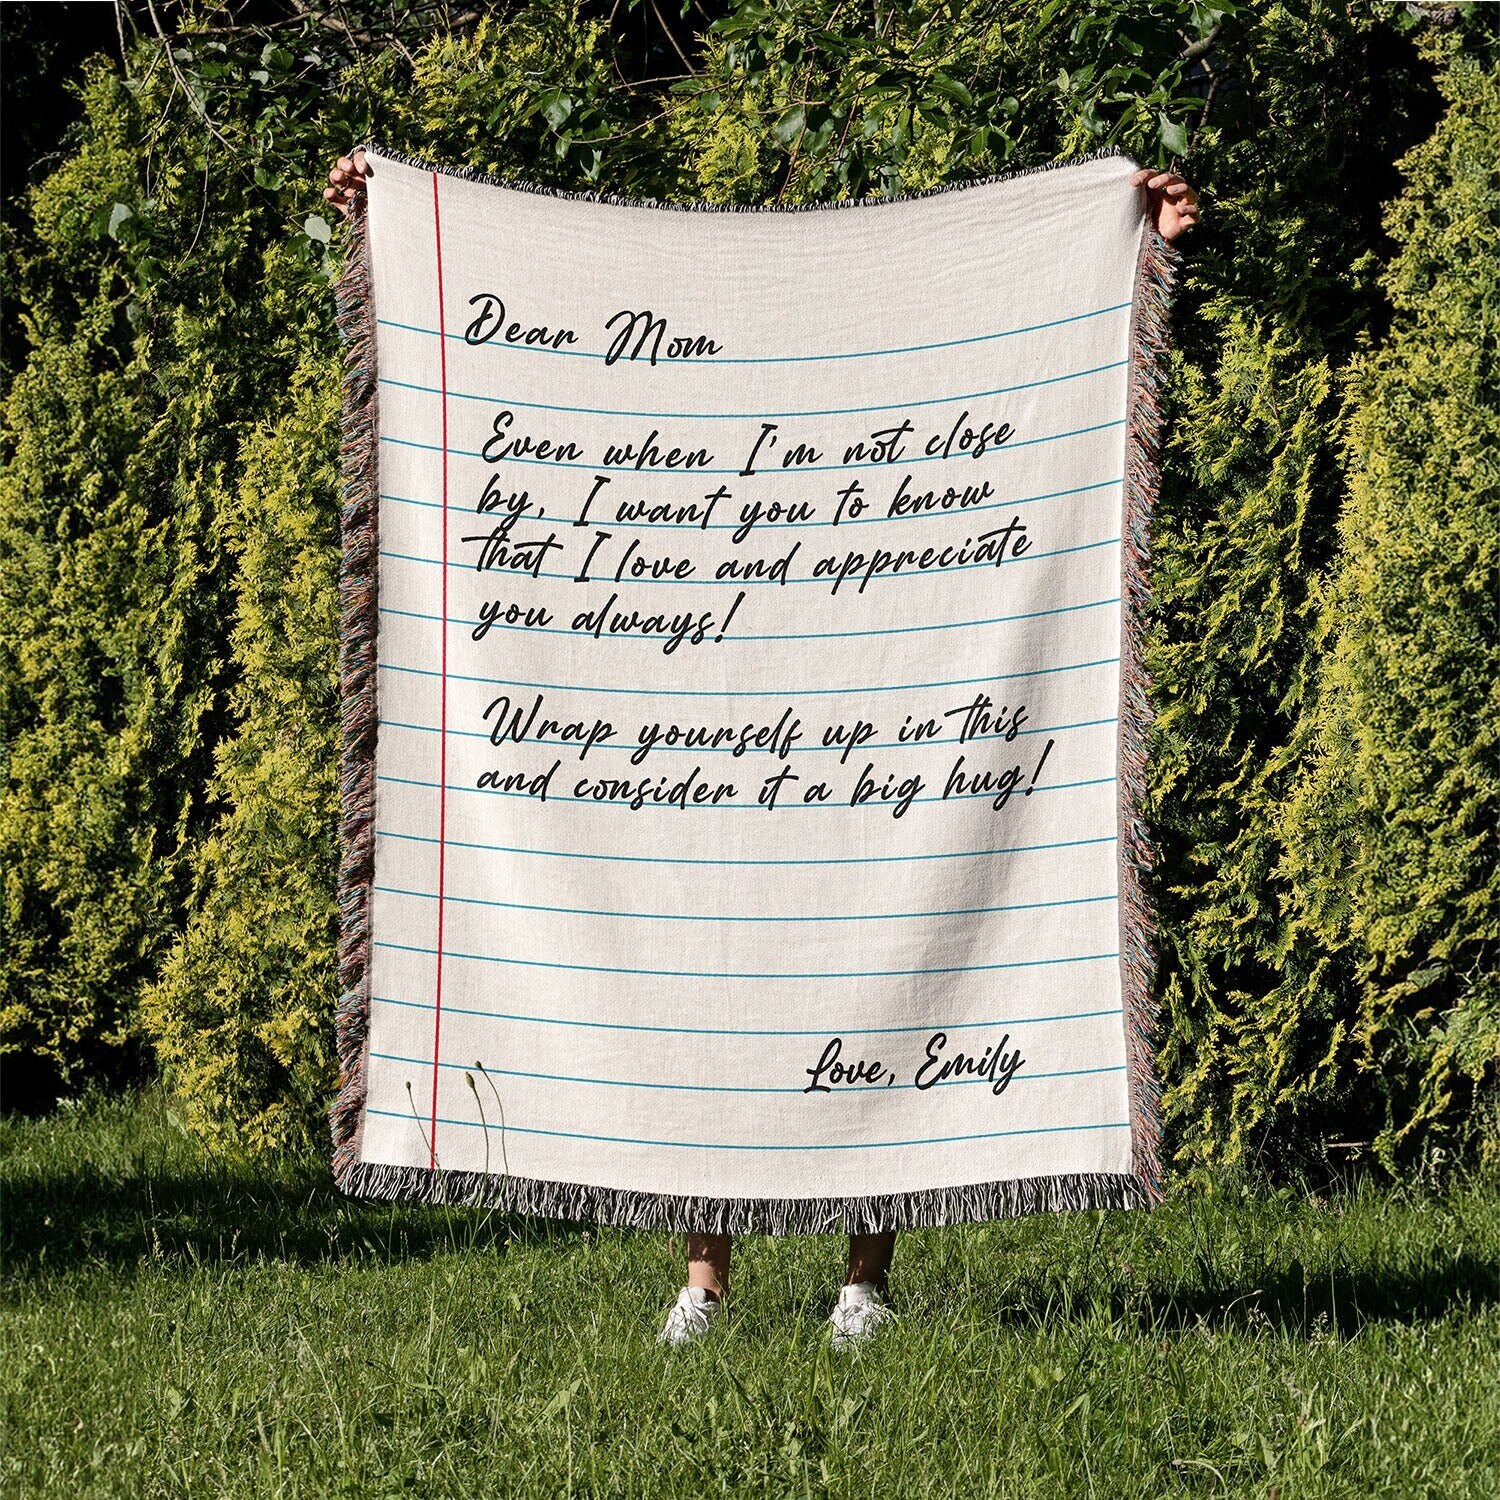 Dear Mom
Even when I'm not close
by, I want you to know
that I love and appreciate
you always!
Wrap yourself up in this
and consider it a big hug!
Love, Emily